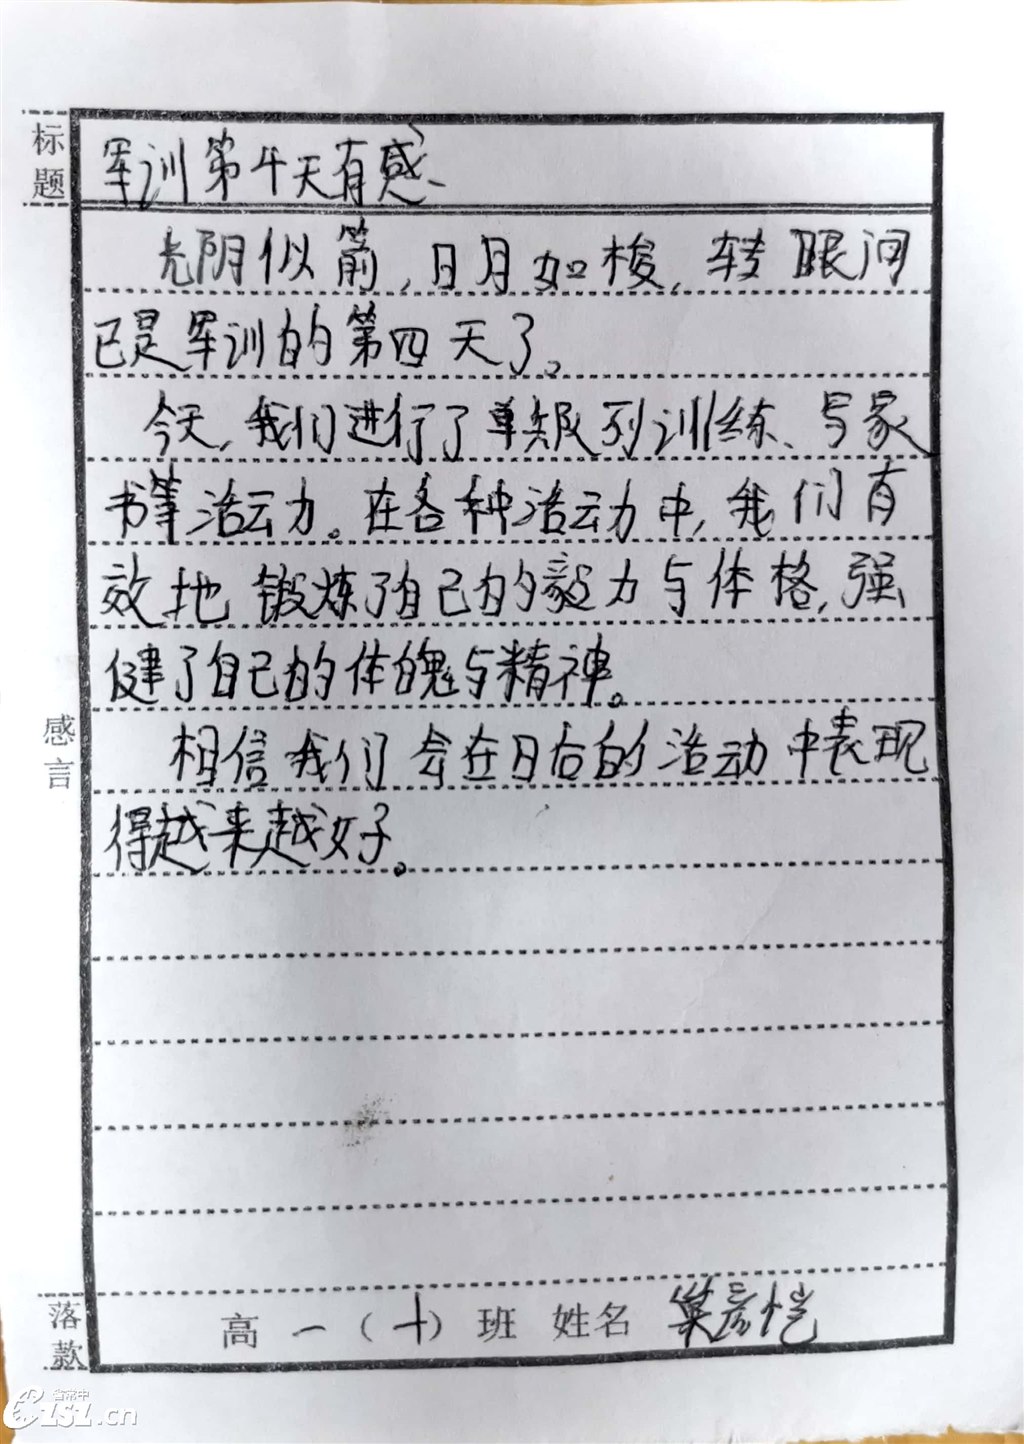 标题
军训第4天有感
光阴似箭,日月如梭,转眼间
已是军训的第四天了。
今天,我们进行了单类队列训练、写家
书等活动。在各种活动中,我们有
效地锻炼了自己的毅力与体格,强
健了自己的体魄与精神。
感言
相信我们会在日后的活动中表现
得越来越好。
落款
高一(十)班 姓名 彦恺
省常中
.cn